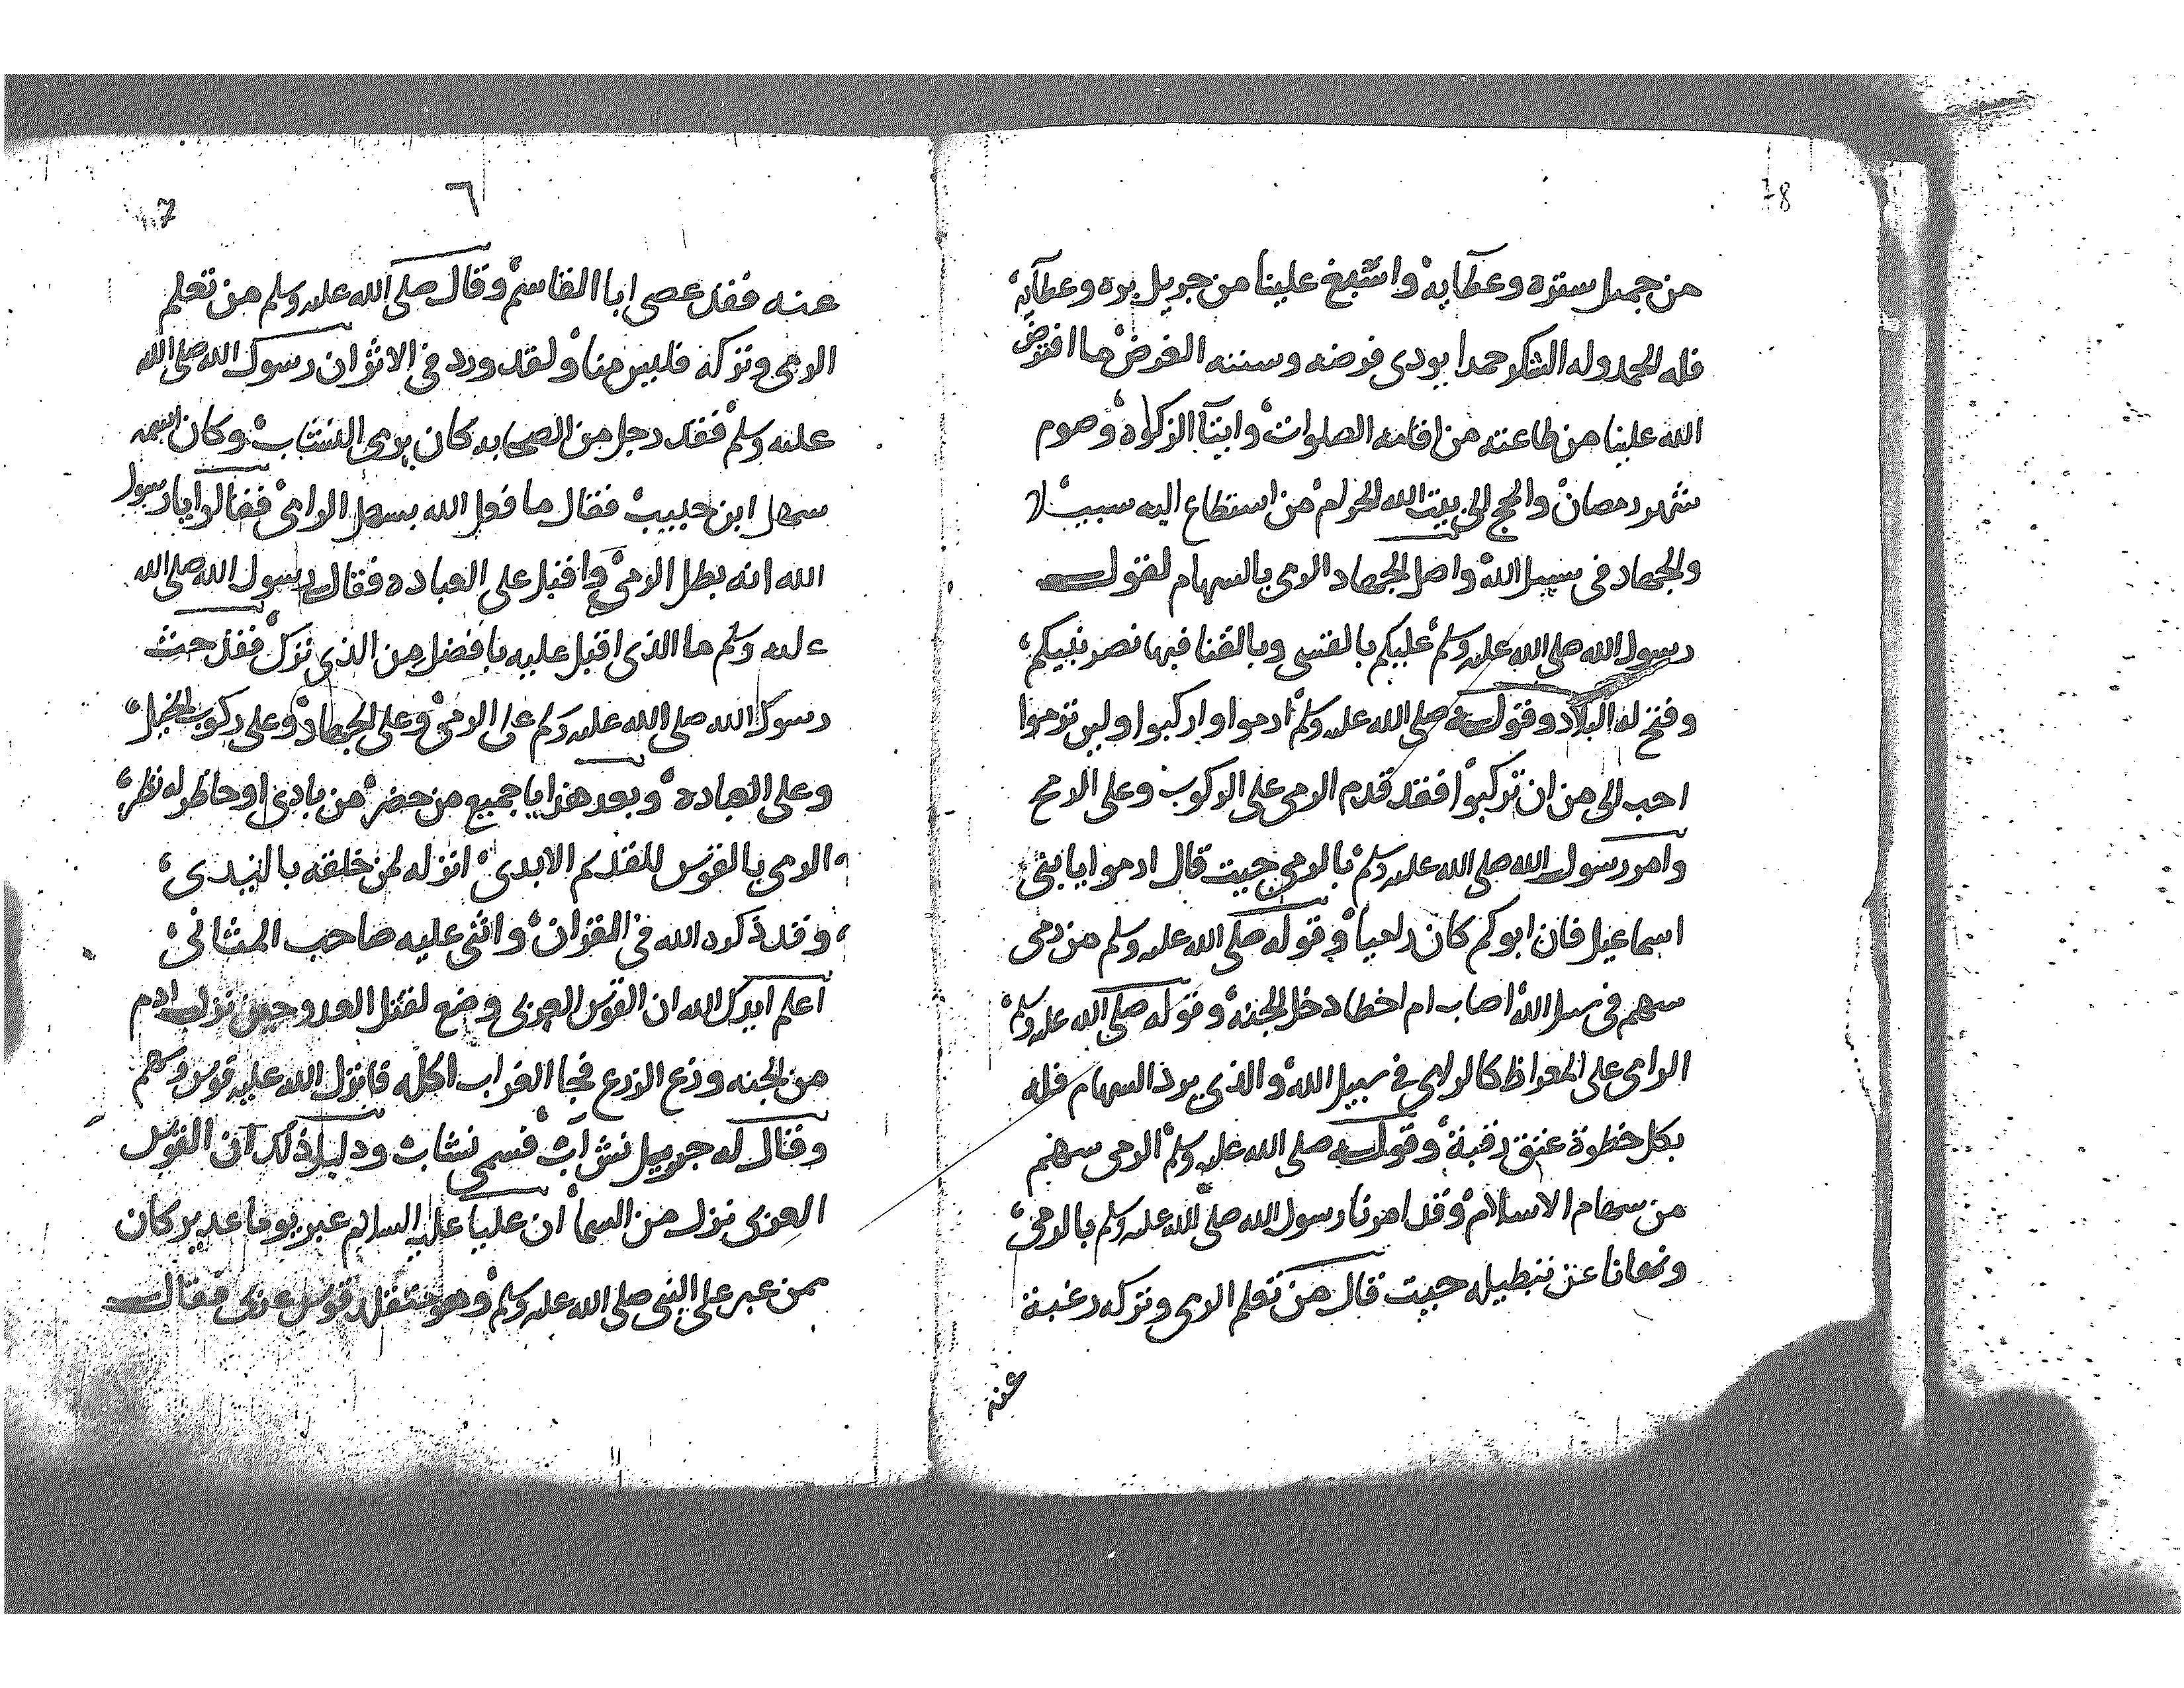 من جميل ستره وعطايه واسبغ علينا من جزيل بره وعطآيه
فله الحمد وله الشكر حمدا يودى فرضه وسننه الفرض ما افترض
الله علينا من طاعته من اقامه الصلوات وايتآ الزكواة وصوم
شهر رمصان والحج الى بيت الله الحرام من استطاع اليه سبيلا
والجهاد فى سبيل الله واصل الجهاد الرمى بالسهام لقول
رسول الله صلى الله عليه وسلم عليكم بالقسى وبالقنا فبها نصر نبيكم
وفتح له البلاد وقوله صلى الله عليه وسلم ارموا واركبوا ولين ترموا
احب الى من ان تركبوا فقد قدم الرمى على الركوب وعلى الرمح
وامر رسول الله صلى الله عليه وسلم بالرمى حيت قال ارموا يا بنى
اسماعيل فان ابوكم كان راميا وقوله صلى الله عليه وسلم من رمى
سهم فى سبيل الله اصاب ام اخطا دخل الجنة وقوله صلى الله عليه وسلم
الرامى على المعراظ كالرامى فى سبيل الله والذى يرد السهام فله
بكل خطوة عتق رقبة وقوله صلى الله عليه وسلم الرمى سهم
من سهام الاسلام وقد امرنا رسول الله صلى الله عليه وسلم بالرمى
ونهانا عن تبطيله حيت قال من تعلم الرمى وتركه رغبة
عنه
7
٦
عنه فقد عصى ابا القاسم وقال صلى الله عليه وسلم من تعلم
الرمى وتركه فليس منا ولقد ورد فى الاثر ان رسول الله صلى الله
عليه وسلم فقد رجل من الصحابه كان يرمى النشاب وكان اسمه
سهل ابن حبيب فقال ما فعل الله بسهل الرامى فقالوا يا رسول
الله انه بطل الرمى واقبل على العباده فقال رسول الله صلى الله
عليه وسلم ما الذى اقبل عليه بافضل من الذى ترك فقد حث
رسول الله صلى الله عليه وسلم على الرمى وعلى الجهاد وعلى ركوب الخيل
وعلى العباده وبعد هذا يا جميع من حضر من بادى او حاظر له نظر
الرمى بالقوس للقديم الابدى انزله لمن خلقه باليدى
وقد ذكره الله فى القران واثنى عليه صاحب المثانى
اعلم ايدك الله ان القوس العربى وضع لقتل العدو حين نزل ادم
من الجنه وزرع الزرع فجا الغراب اكله فانزل الله عليه قوس وسهم
وقال له جبريل نش آب فسمى نشاب ودليل ذلك ان القوس
العربى نزل من السما ان عليا عليه السلام عبر يوما عدير كان
ممن عبر على النبى صلى الله عليه وسلم وهو متقلد قوس عربى فقال